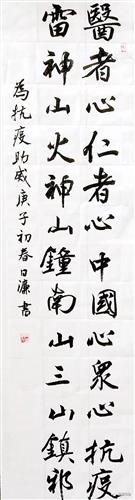 醫者心仁者心中國心眾心抗疫
雷神山火神山鐘南山三山鎮邪
為抗疫助威庚子初春日濂書